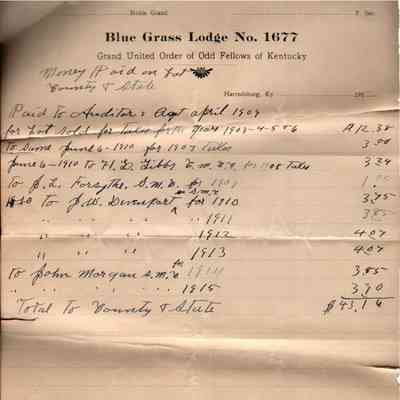 Noble Grand P. Sec.
Blue Grass Lodge No. 1677
Grand United Order of Odd Fellows of Kentucky
Money Paid on Lot
County & State
Harrodsburg, Ky 191
Paid to Auditor's Agt april 1909
for Lot sold for Taxes for the years 1903-4-5 & 6 $12.38
to Same June 6-1910 for 1907 Taxes
June 6-1910 to H. D. Tibbs for 1908 Taxes 3.34
to J. L. Forsythe, S.M.C. for 1909
to J.W. Davenport S.M.C. for 1910 3.75
" " " " 1911 3.85
" " " " 1912 4.07
" " " " 1913 4.07
to John Morgan S.M.C. for 1914 3.85
" " " " " 1915 3.90
Total to County & State $43.16